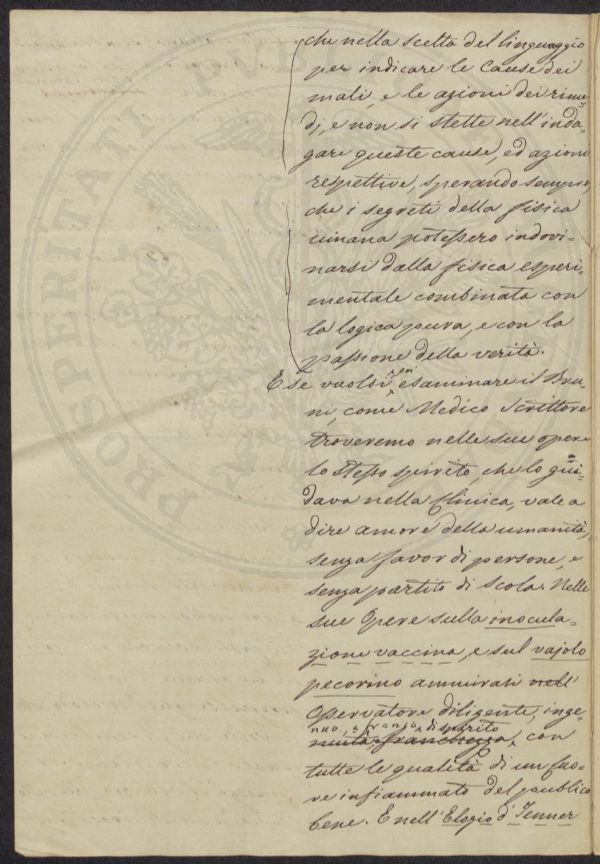 che nella scelta del linguaggio
per indicare le Cause dei
mali, e le azioni dei rime=
dj, e non si stette nell'inda=
gare queste cause, ed azioni
respettive, sperando sempre,
che i segreti della fisica
umana potessero indovi=
narsi dalla fisica esperi=
mentale combinata con
la logica pura, e con la
passione della verità.
E se vuolsi poi esaminare il Bru=
ni, come Medico Scrittore
troveremo nelle sue opere
lo stesso spirito, che lo gui=
dava nella Clinica, vale a
dire amore della umanità,
senza favor di persone, e
senza partito di Scola. Nelle
sue Opere sulla inocula=
zione vaccina, e sul vajolo
pecorino ammirasi nell'
Osservatore diligente, inge=
nuo, e franco, di spirito
nuità, franchezza, con
tutte le qualità di un cuo=
re infiammato del pubblico
bene. E nell'Elogio d'Jenner
PROSPERITATI PUB